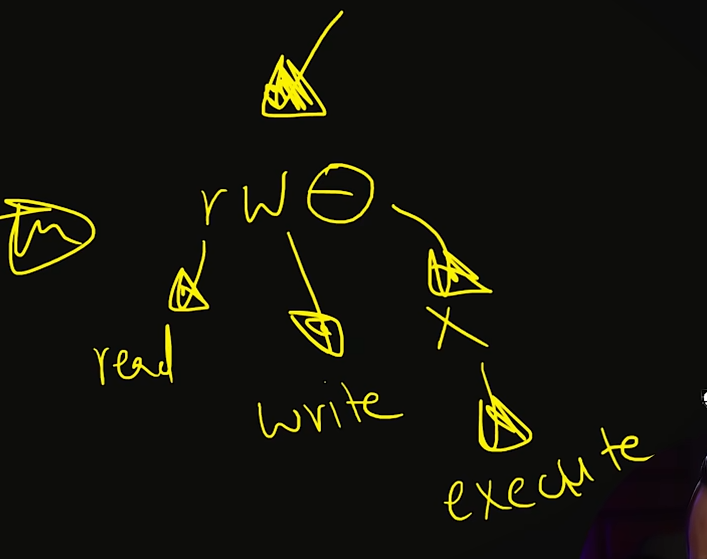 rw-
x
read
write
execute